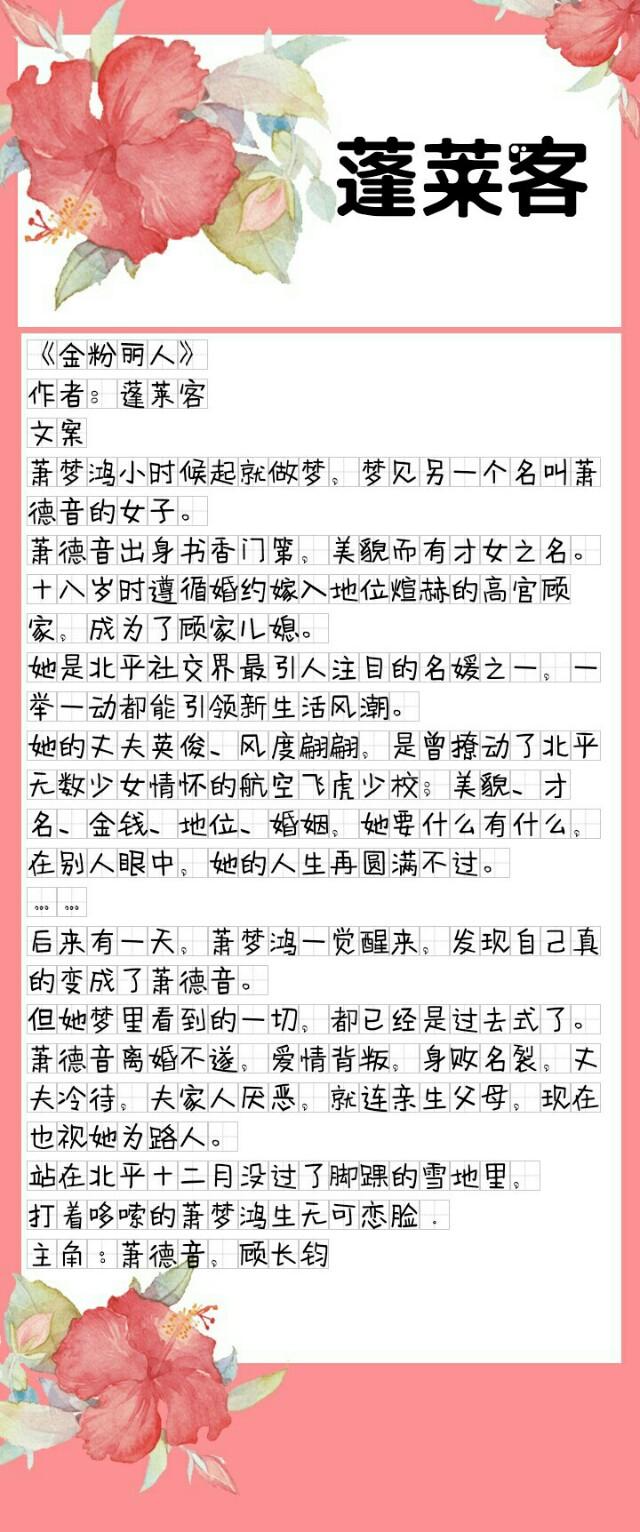 蓬莱客
《金粉丽人》
作者：蓬莱客
文案
萧梦鸿小时候起就做梦，梦见另一个名叫萧
德音的女子。
萧德音出身书香门第，美貌而有才女之名。
十八岁时遵循婚约嫁入地位煊赫的高官顾
家，成为了顾家儿媳。
她是北平社交界最引人注目的名媛之一，一
举一动都能引领新生活风潮。
她的丈夫英俊、风度翩翩，是曾撩动了北平
无数少女情怀的航空飞虎少校；美貌、才
名、金钱、地位、婚姻，她要什么有什么，
在别人眼中，她的人生再圆满不过。
……
后来有一天，萧梦鸿一觉醒来，发现自己真
的变成了萧德音。
但她梦里看到的一切，都已经是过去式了。
萧德音离婚不遂，爱情背叛，身败名裂，丈
夫冷待，夫家人厌恶，就连亲生父母，现在
也视她为路人。
站在北平十二月没过了脚踝的雪地里，
打着哆嗦的萧梦鸿生无可恋脸．
主角：萧德音，顾长钧